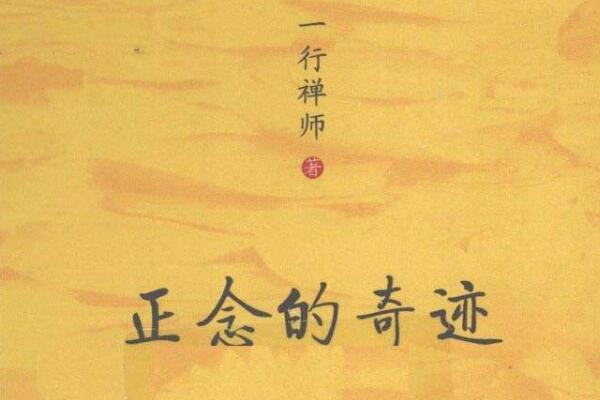 一行禅师 著
正念的奇迹